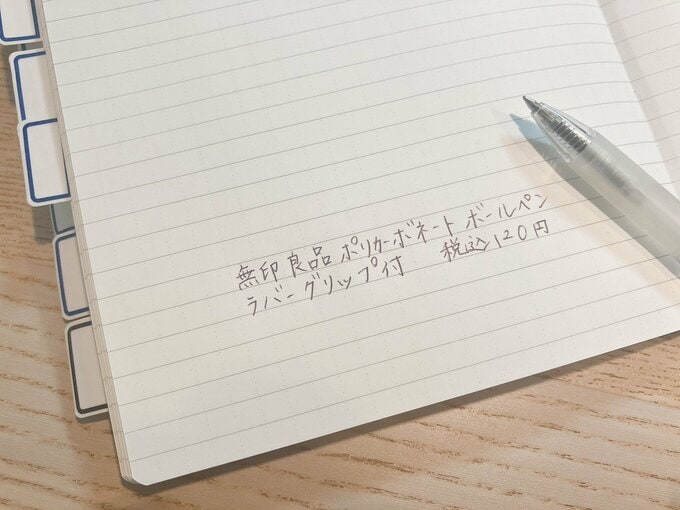 無印良品 ポリカーボネート ボールペン
ラバーグリップ付 税込120円